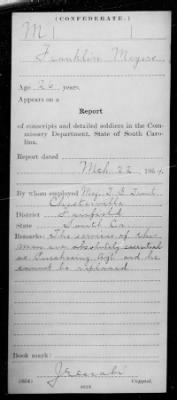 (CONFEDERATE.)
M
Franklin Meyers
Age 26 years.
Appears on a
Report
of conscripts and detailed soldiers in the Com-
missary Department, State of South Caro-
lina.
Report dated Mch. 22, 1864.
By whom employed Maj.
Chesterville
District Fairfield
State South Ca
Remarks: The services of this
man are absolutely essential
as Purchasing Agt and he
cannot be replaced
Book mark:
Copyist.